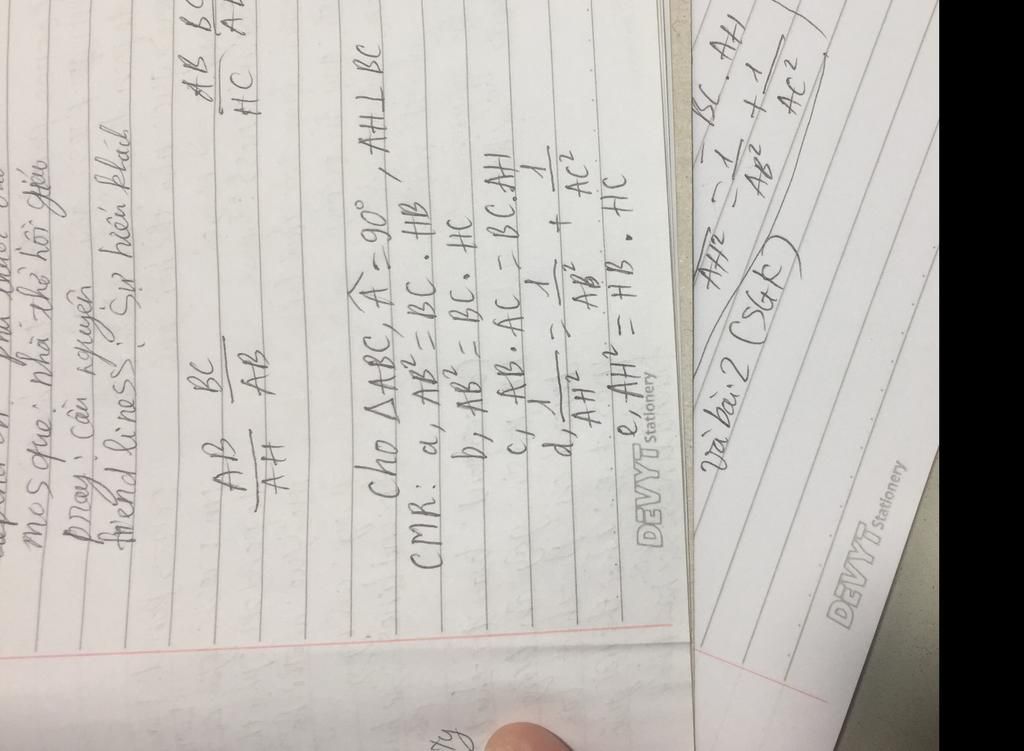 mosque: nhà thờ hồi giáo
pray: cầu nguyện
friendliness: sự hiếu khách
AB BC
AH AB
AB BC
HC
Cho ΔABC, Â = 90°, AH⊥BC
CMR: a, AB² = BC . HB
b, AB² = BC . HC
c, AB . AC = BC.AH
d, 1/AH² = 1/AB² + 1/AC²
e, AH² = HB . HC
DEVYT Stationery
BC . AH
AH² = 1/AB² + 1/AC²
và bài 2 (SGK)
DEVYT Stationery